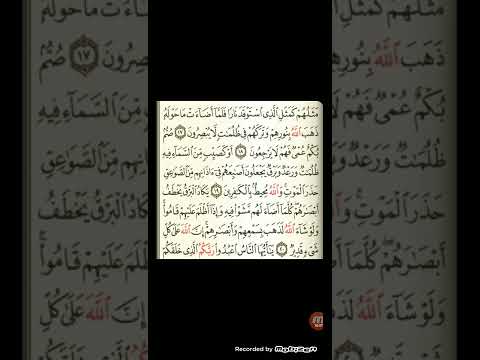 مَثَلُهُمْ كَمَثَلِ ٱلَّذِى ٱسْتَوْقَدَ نَارًا فَلَمَّآ أَضَآءَتْ مَا حَوْلَهُۥ
ذَهَبَ ٱللَّهُ بِنُورِهِمْ وَتَرَكَهُمْ فِى ظُلُمَٰتٍ لَّا يُبْصِرُونَ ١٧ صُمٌّۢ
بُكْمٌ عُمْىٌ فَهُمْ لَا يَرْجِعُونَ ١٨ أَوْ كَصَيِّبٍ مِّنَ ٱلسَّمَآءِ فِيهِ
ظُلُمَٰتٌ وَرَعْدٌ وَبَرْقٌ يَجْعَلُونَ أَصَٰبِعَهُمْ فِىٓ ءَاذَانِهِم مِّنَ ٱلصَّوَٰعِقِ
حَذَرَ ٱلْمَوْتِ وَٱللَّهُ مُحِيطٌۢ بِٱلْكَٰفِرِينَ ١٩ يَكَادُ ٱلْبَرْقُ يَخْطَفُ
أَبْصَٰرَهُمْ كُلَّمَآ أَضَآءَ لَهُم مَّشَوْا۟ فِيهِ وَإِذَآ أَظْلَمَ عَلَيْهِمْ قَامُوا۟
وَلَوْ شَآءَ ٱللَّهُ لَذَهَبَ بِسَمْعِهِمْ وَأَبْصَٰرِهِمْ إِنَّ ٱللَّهَ عَلَىٰ كُلِّ
شَىْءٍ قَدِيرٌ ٢٠ يَٰٓأَيُّهَا ٱلنَّاسُ ٱعْبُدُوا۟ رَبَّكُمُ ٱلَّذِى خَلَقَكُمْ
Recorded by Mobizen